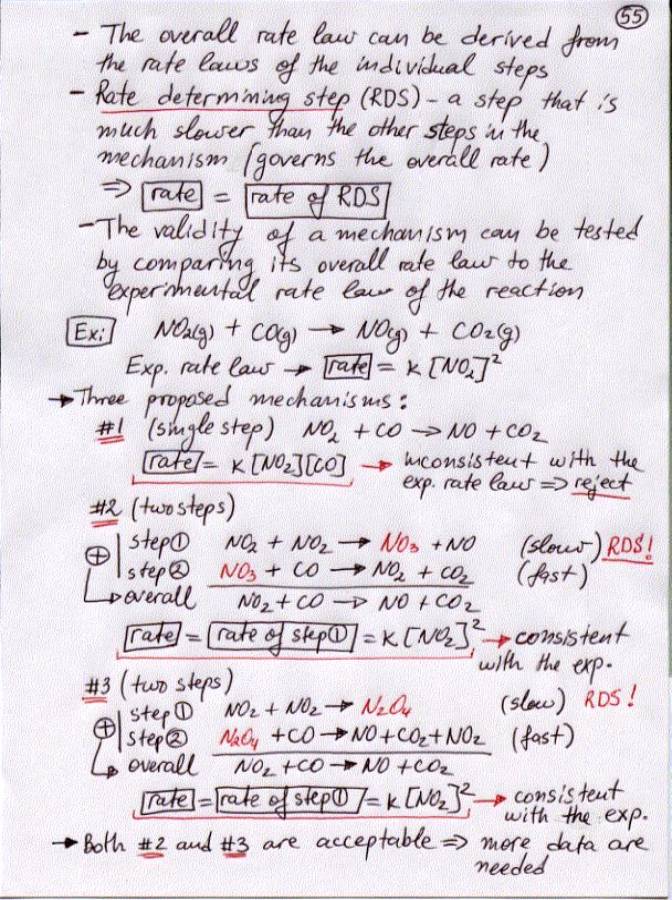 55
- The overall rate law can be derived from
the rate laws of the individual steps
- Rate determining step (RDS) - a step that is
much slower than the other steps in the
mechanism (governs the overall rate)
⇒ rate = rate of RDS
- The validity of a mechanism can be tested
by comparing its overall rate law to the
experimental rate law of the reaction
Ex: NO₂(g) + CO(g) → NO(g) + CO₂(g)
Exp. rate law → rate = k[NO₂]²
→ Three proposed mechanisms:
#1 (single step) NO₂ + CO → NO + CO₂
rate = k[NO₂][CO] → inconsistent with the
exp. rate law ⇒ reject
#2 (two steps)
step① NO₂ + NO₂ → NO₃ + NO (slow) RDS!
⊕ step② NO₃ + CO → NO₂ + CO₂ (fast)
overall NO₂ + CO → NO + CO₂
rate = rate of step① = k[NO₂]² → consistent
with the exp.
#3 (two steps)
step① NO₂ + NO₂ → N₂O₄ (slow) RDS!
⊕ step② N₂O₄ + CO → NO + CO₂ + NO₂ (fast)
overall NO₂ + CO → NO + CO₂
rate = rate of step① = k[NO₂]² → consistent
with the exp.
→ Both #2 and #3 are acceptable ⇒ more data are
needed